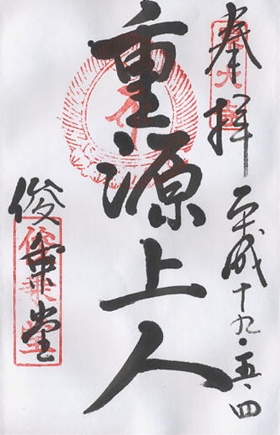 奉拝
平成十九・五・四
重源上人
俊乗堂